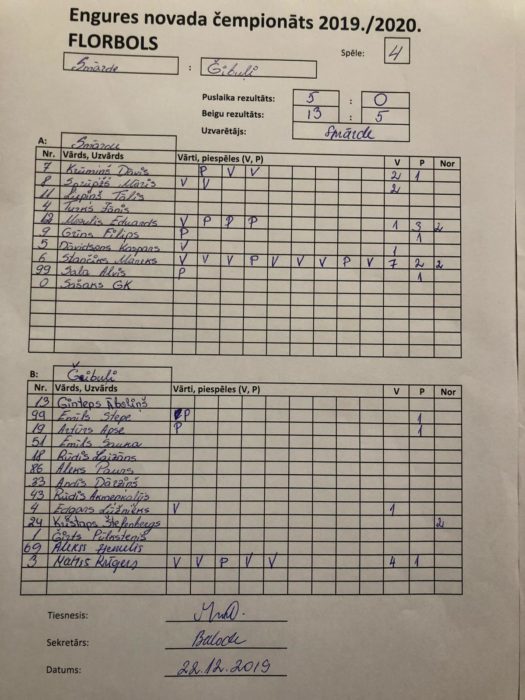 Engures novada čempionāts 2019./2020.
FLORBOLS
Spēle: 4
Smārde : Čibuļi
Puslaika rezultāts: 5 : 0
Beigu rezultāts: 13 : 5
Uzvarētājs: Smārde
A: Smārde
Nr. Vārds, Uzvārds Vārti, piespēles (V, P) V P Nor
7 Krūmiņš Dāvis P V V 2 1
8 Sprūģis Māris V V 2
11 Lupiņš Tālis
4 Jānis
12 Eduards V P P P 1 3 2
9 Grīns Filips P 1
5 Dāvidsons Kaspars V 1
6 V V V P V V V P V 7 2 2
99 Sala Alvis P 1
0 Sašans GK
B: Čibuļi
Nr. Vārds, Uzvārds Vārti, piespēles (V, P) V P Nor
13 Ginteps Āboliņš
99 Emīls Stepe P 1
19 Artūrs Apse P 1
51 Emīls
18 Rūdis Laizāns
86 Aleks
33 Andis Dārziņš
93 Rūdis
4 Edgars V 1
24 Kristaps 2
1 Ģirts Pūksteņis
69 Alekss
3 Matīss Krūgers V V P V V 4 1
Tiesnesis:
Sekretārs: Balode
Datums: 22.12.2019